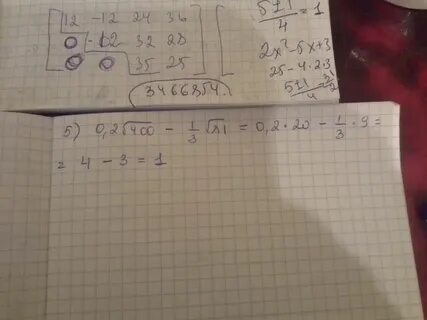 12 -12 24 36
0 -12 32 28
0 0 35 25
3466854
5±1/4 = 1
2x²-5x+3
25-4·2·3
5) 0,2√400 - 1/3 √81 = 0,2·20 - 1/3 · 9 =
= 4 - 3 = 1